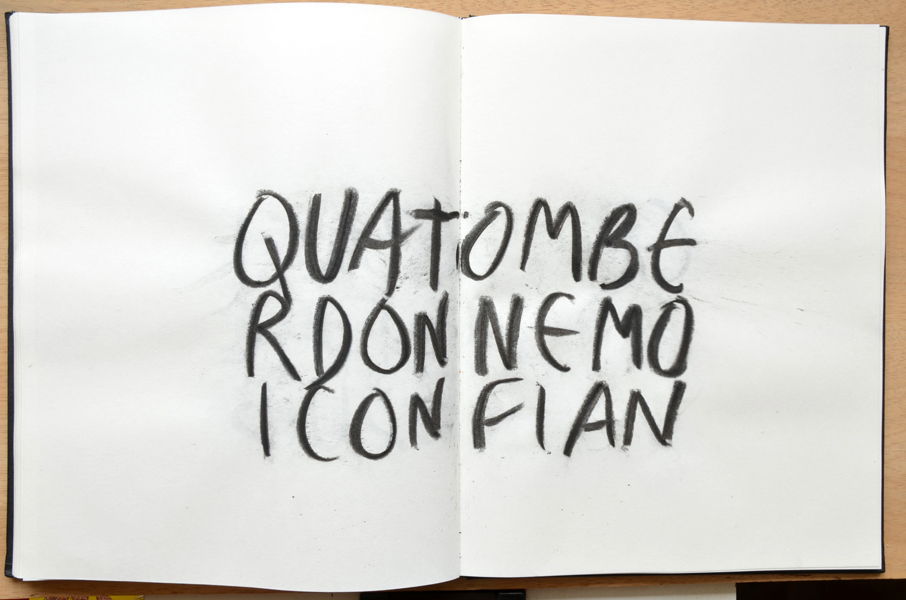 QUATOMBE
RDONNEMO
ICONFIAN